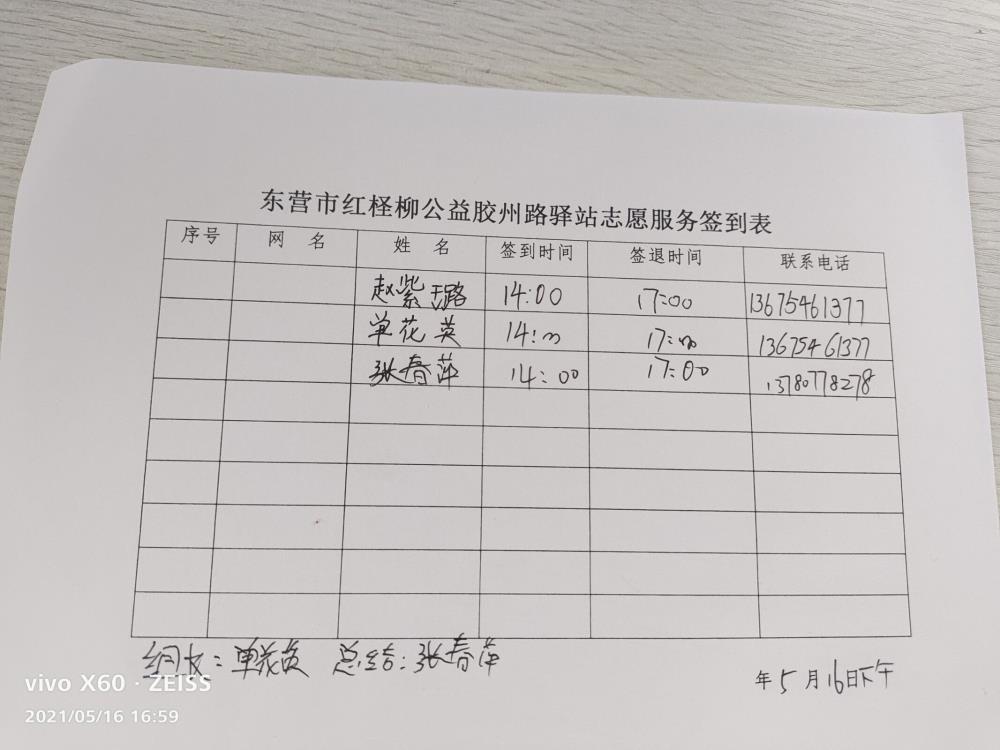 东营市红柽柳公益胶州路驿站志愿服务签到表
序号 网 名 姓 名 签到时间 签退时间 联系电话
赵紫璐 14:00 17:00 13675461377
单花英 14:00 17:00 13675461377
张春萍 14:00 17:00 13780778278
组长:单花英 总结:张春萍
年5月16日下午
vivo X60 · ZEISS
2021/05/16 16:59